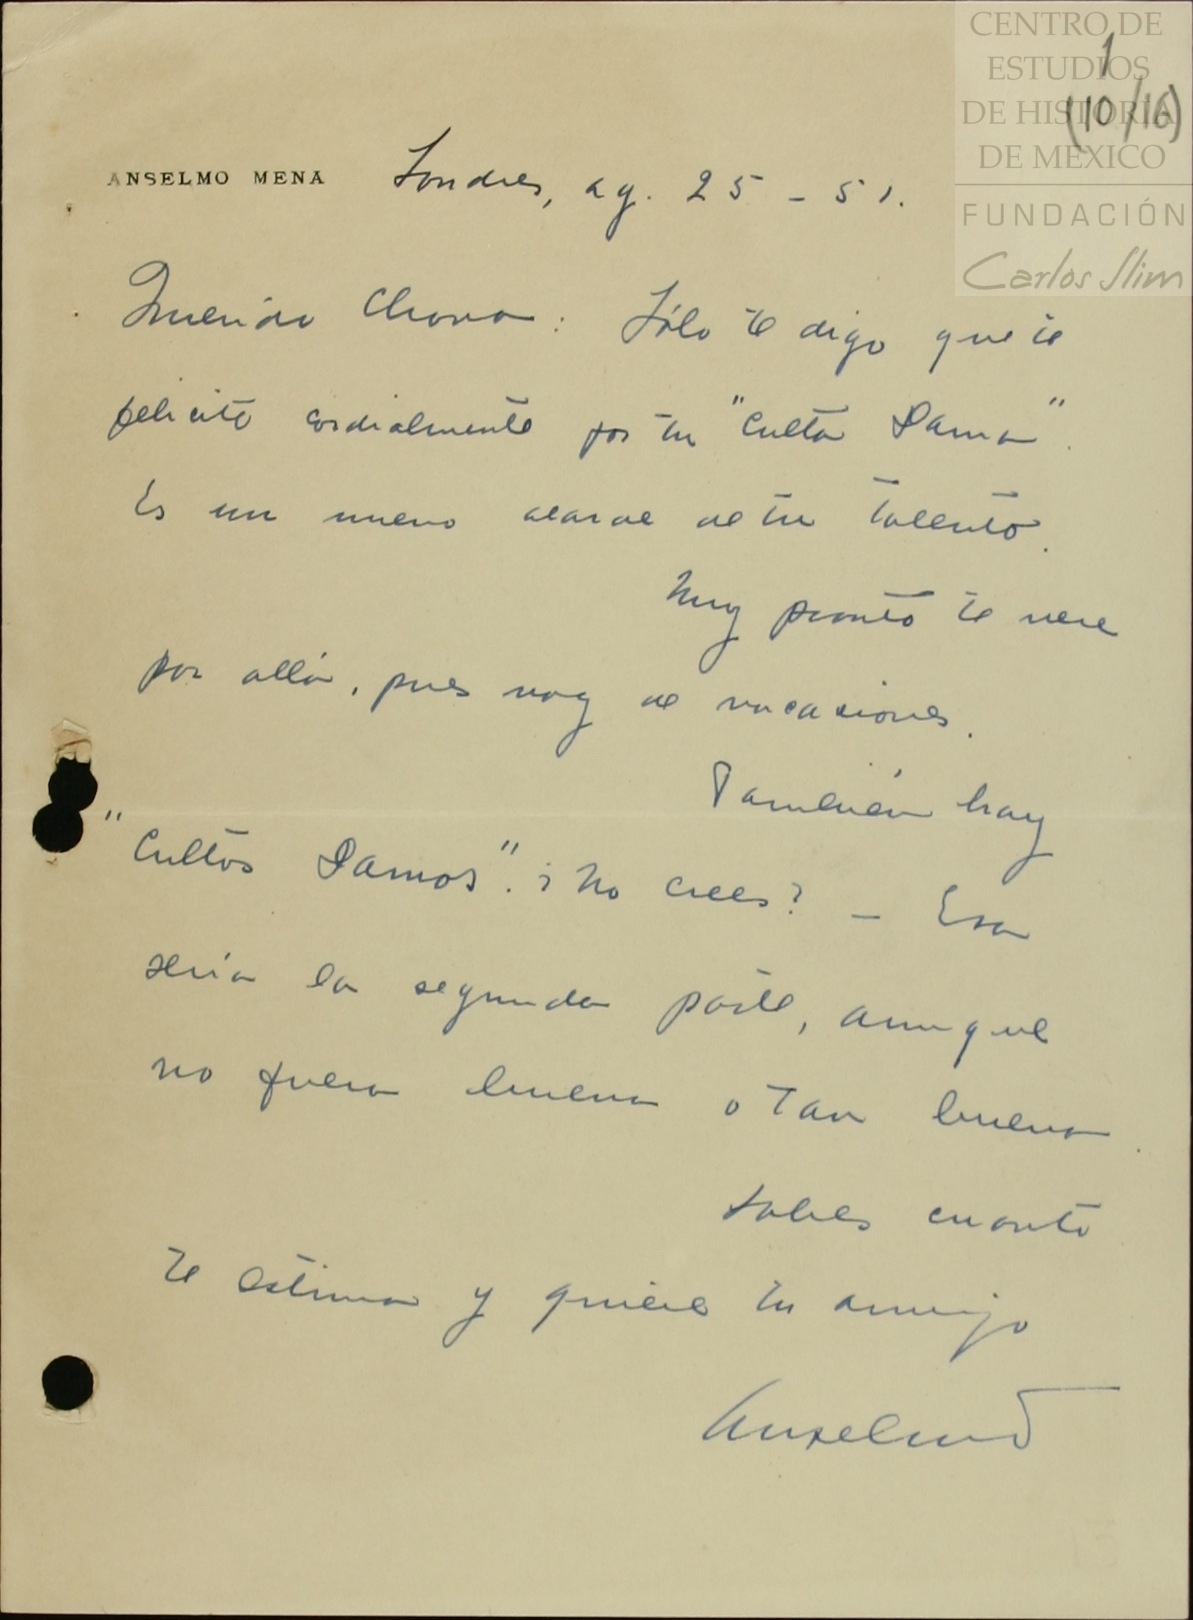 CENTRO DE
ESTUDIOS
DE HISTORIA
DE MÉXICO
FUNDACIÓN
Carlos Slim
1
(10/16)
ANSELMO MENA Londres, ag. 25 - 51.
Querido Chava: Sólo te digo que te
felicito cordialmente por tu "Culta Dama".
Es un nuevo alarde de tu talento.
Muy pronto te veré
por allá, pues voy de vacaciones.
También hay
"Cultos Damos". ¿No crees? — Esa
sería la segunda parte, aunque
no fuera buena o tan buena.
Sabes cuanto
te estima y quiere tu amigo
Anselmo